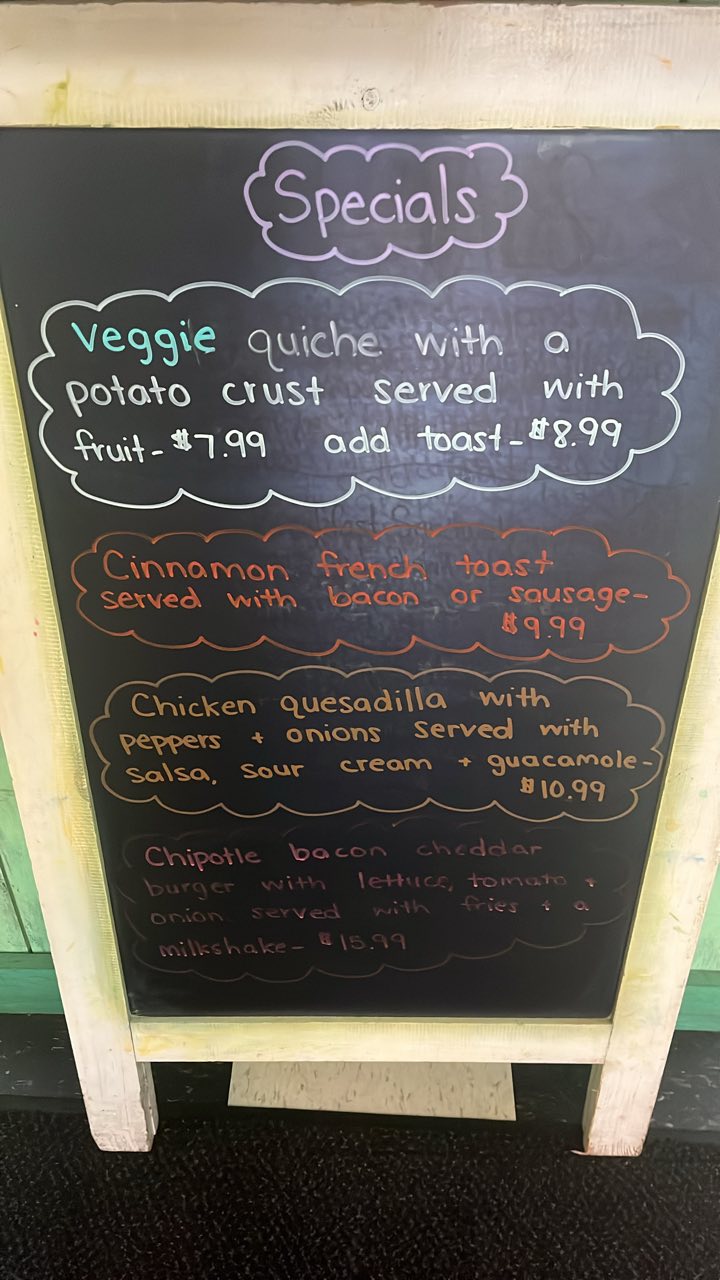 Specials
Veggie quiche with a
potato crust served with
fruit- $7.99 add toast- $8.99
Cinnamon french toast
served with bacon or sausage-
$9.99
Chicken quesadilla with
peppers + onions served with
salsa, sour cream + guacamole-
$10.99
Chipotle bacon cheddar
burger with lettuce, tomato +
onion served with fries + a
milkshake- $15.99